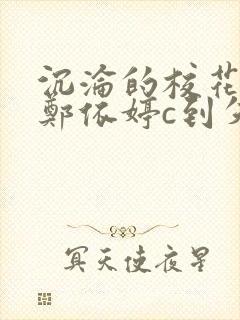 沉淪的校花
鄭依婷c到失
冥天使夜星